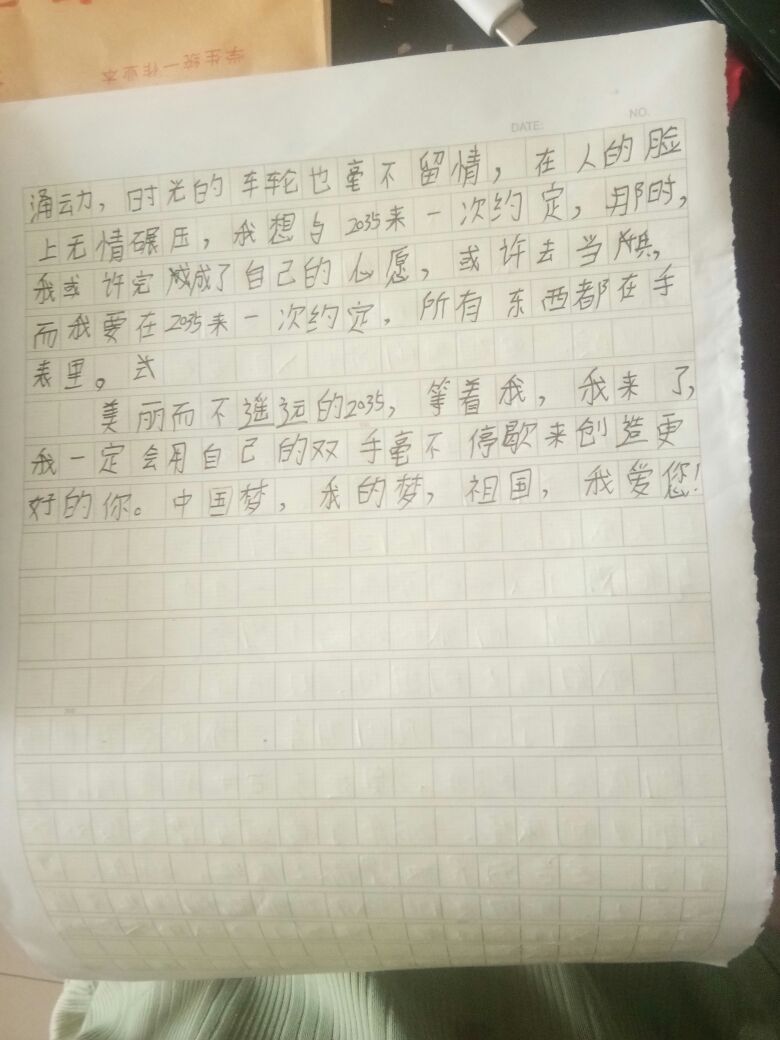 学生统一作业本
DATE: NO.
涌动,时光的车轮也毫不留情,在人的脸
上无情碾压,我想与2035来一次约定,那时,
我或许完成了自己的心愿,或许去当兵,
而我要在2035来一次约定,所有东西都在手
表里。
美丽而不遥远的2035,等着我,我来了,
我一定会用自己的双手毫不停歇来创造更
好的你。中国梦,我的梦,祖国,我爱您!